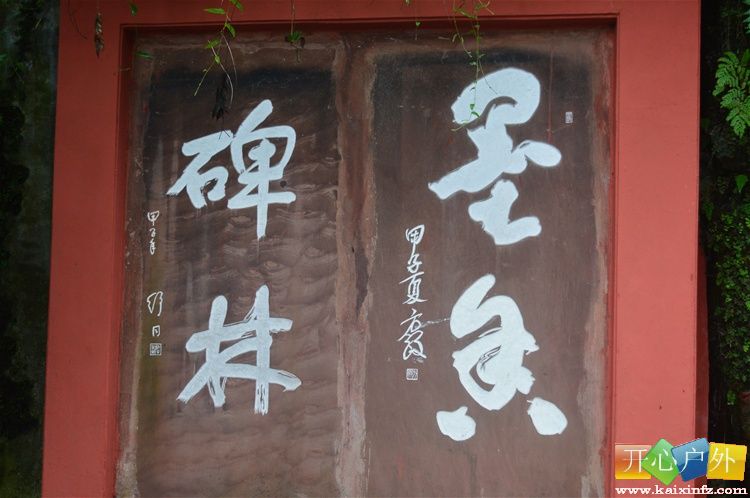 墨
甲子夏 方毅
碑林
甲子年 舒同
开心户外
www.kaixinfz.com